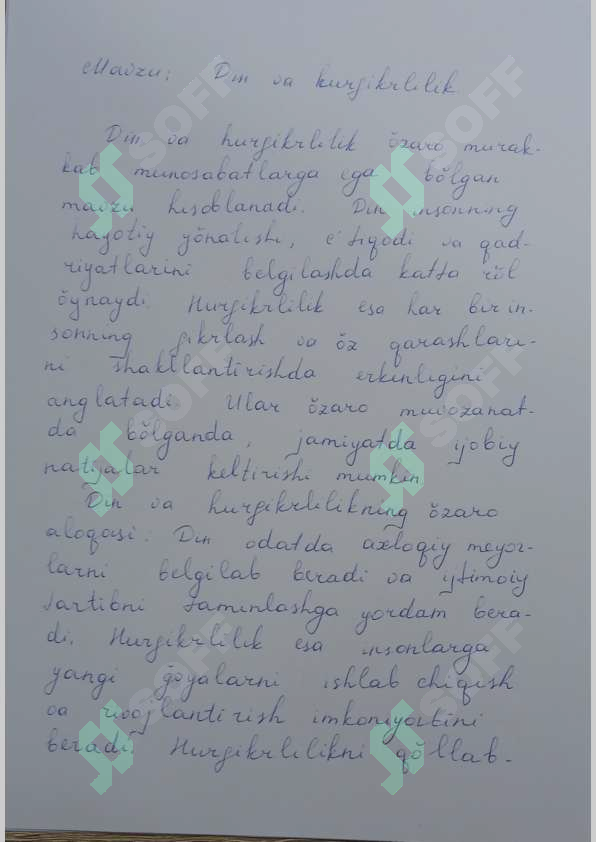 Mavzu: Din va hurfikrlilik.
Din va hurfikrlilik õzaro murak-
kab munosabatlarga ega bõlgan
mavzu hisoblanadi. Din insonning
hayotiy yõnalishi, e'tiqodi va qad-
riyatlarini belgilashda katta rõl
õynaydi. Hurfikrlilik esa har bir in-
sonning fikrlash va õz qarashlari-
ni shakllantirishda erkinligini
anglatadi. Ular õzaro muvozanat-
da bõlganda, jamiyatda ijobiy
natijalar keltirishi mumkin.
Din va hurfikrlilikning õzaro
aloqasi: Din odatda axloqiy meyor-
larni belgilab beradi va ijtimoiy
tartibni taminlashga yordam bera-
di. Hurfikrlilik esa insonlarga
yangi g̃oyalarni ishlab chiqish
va rivojlantirish imkoniyatini
beradi. Hurfikrlilikni qõllab-
SOFF
SOFF
SOFF
SOFF
SOFF
SOFF